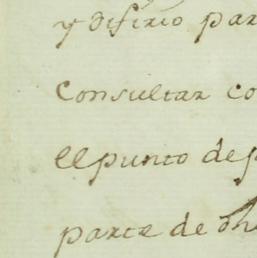 y difirio par
Consultar co
el punto de p
parte de